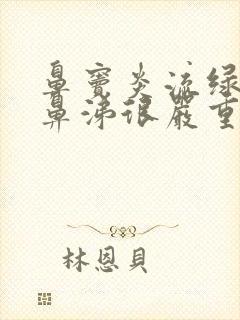 鼻窦炎流绿
鼻涕很嚴重
林恩貝